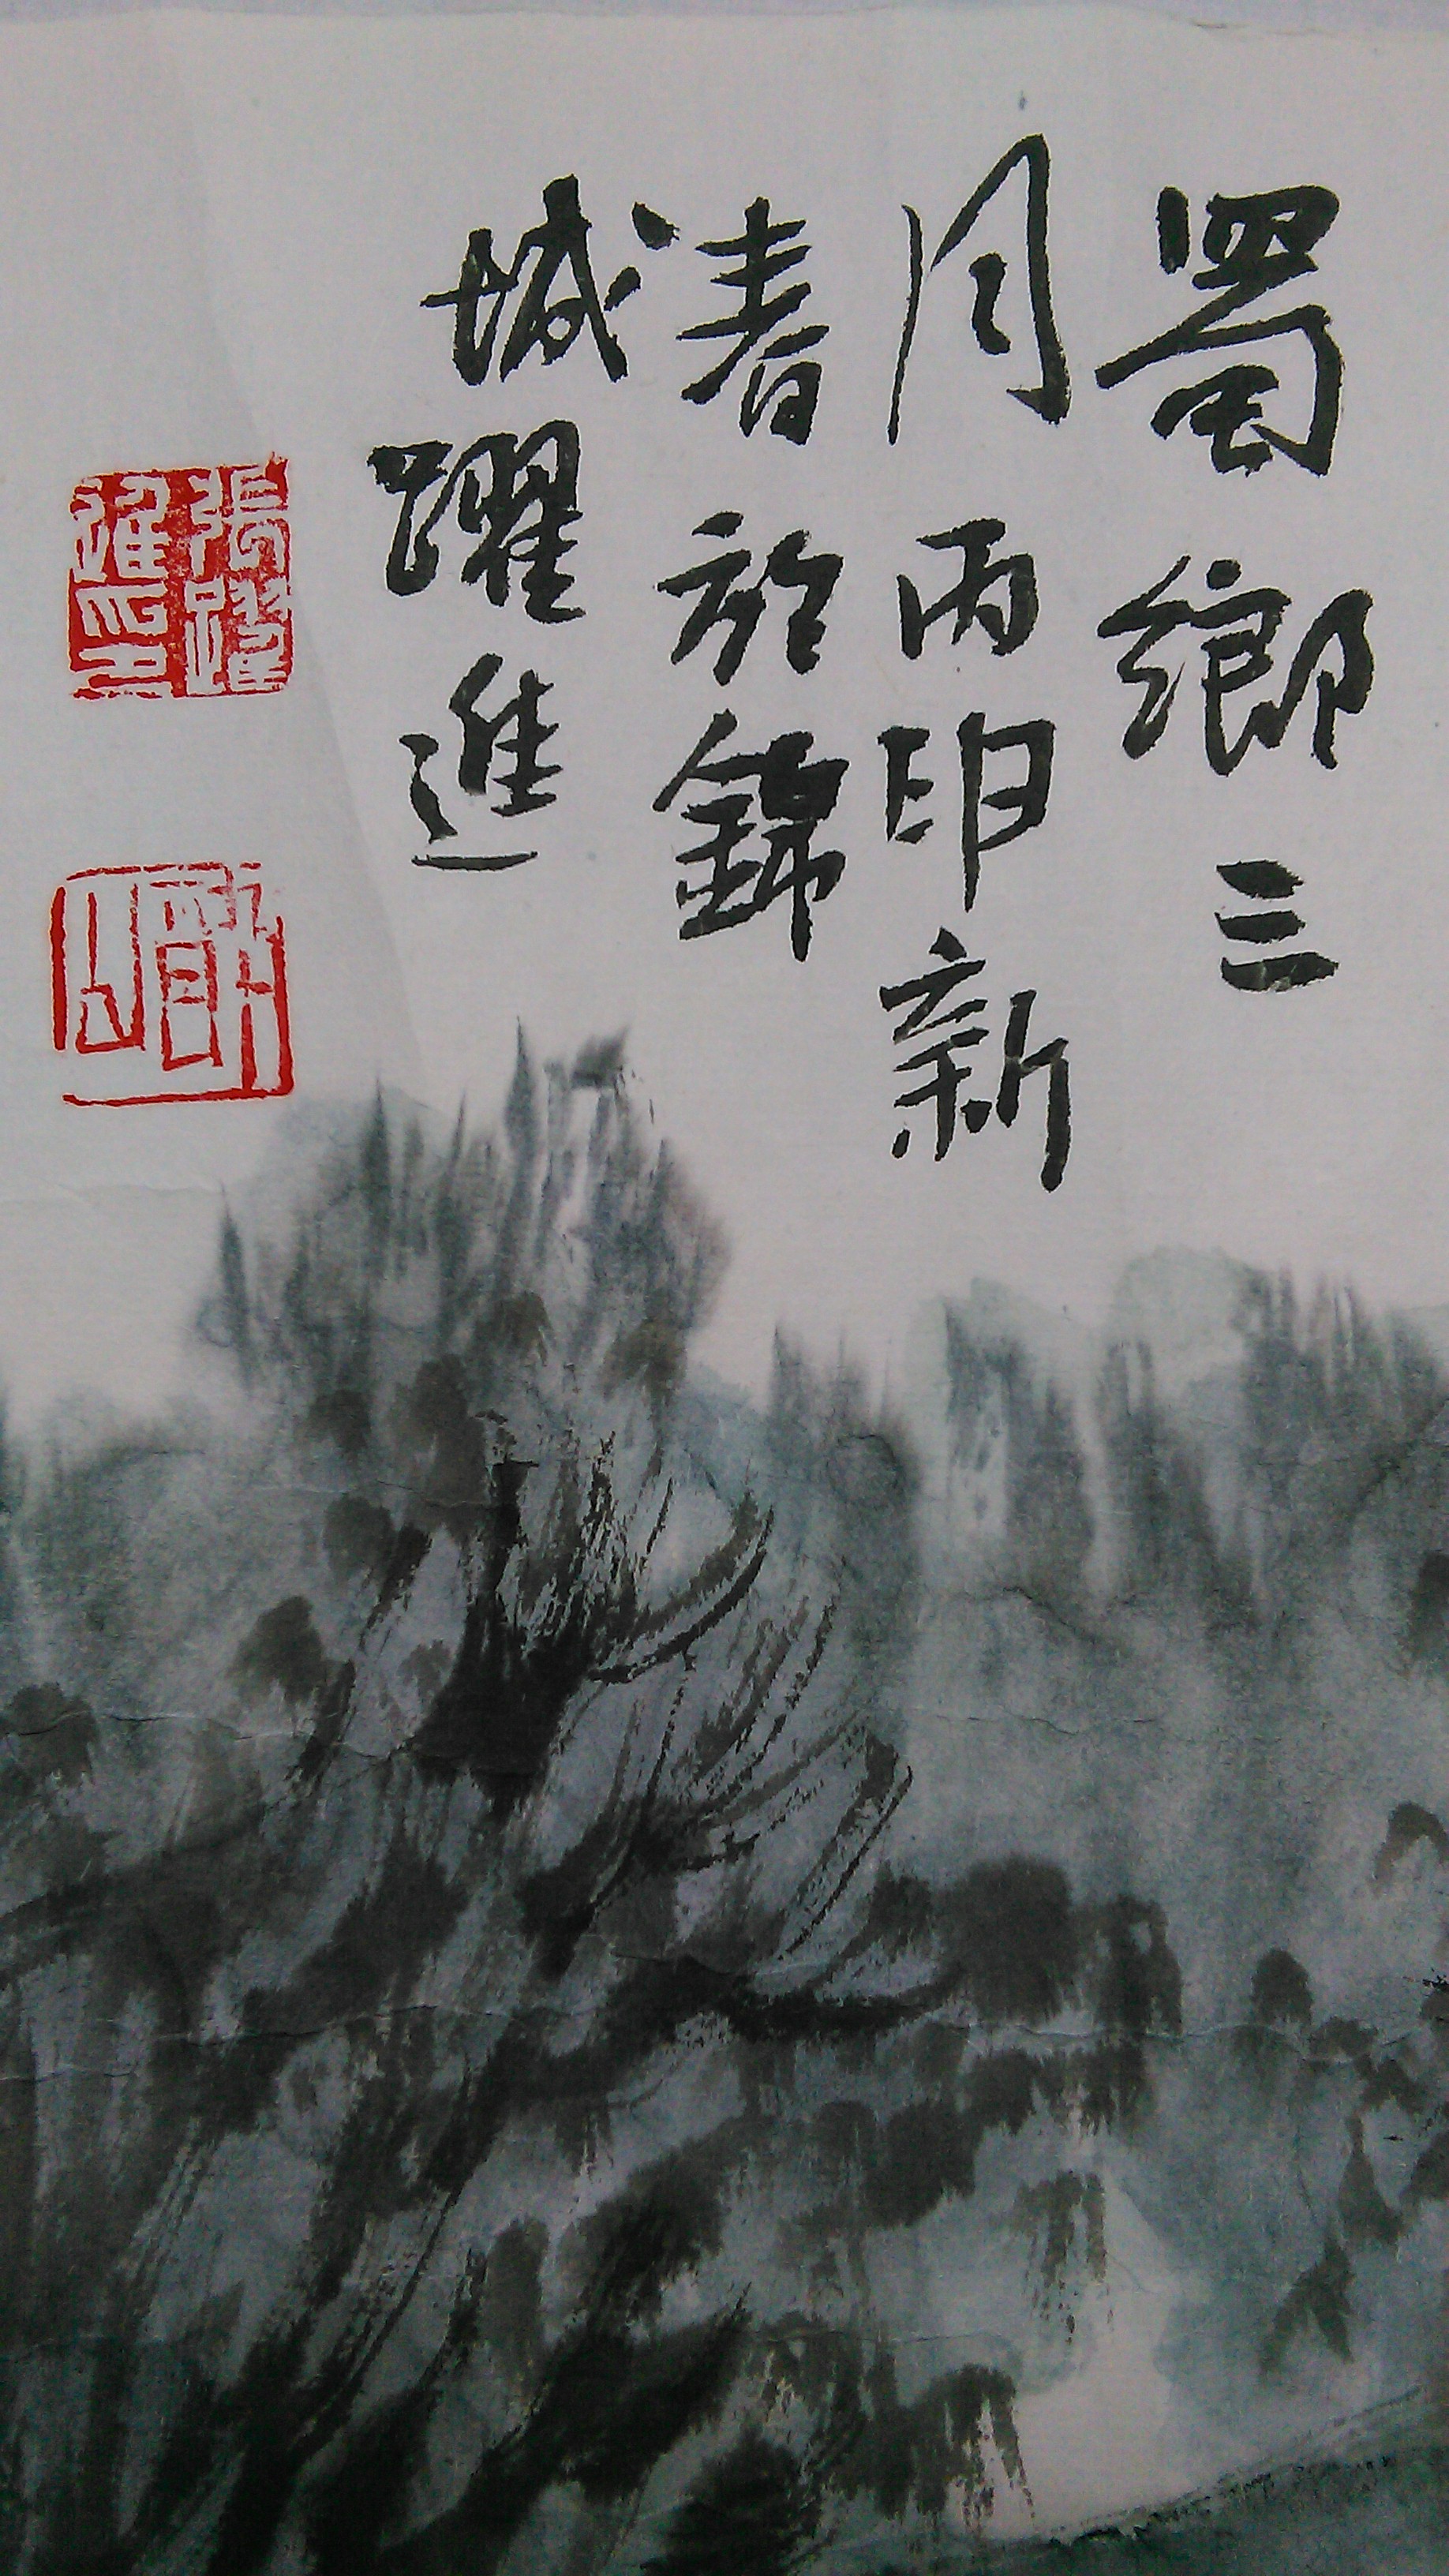 蜀鄉三
月丙申新
春於錦
城躍進
張躍
進印